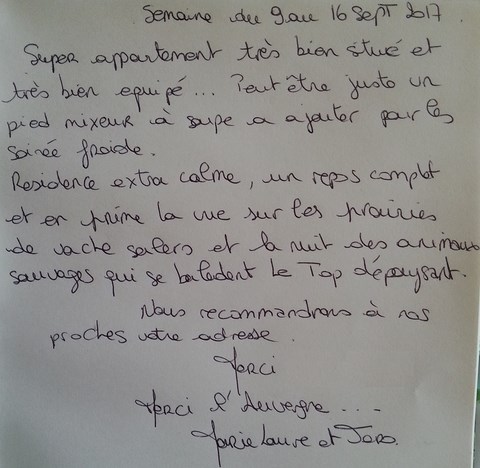 Semaine du 9 au 16 Sept 2017.
Super appartement très bien situé et
très bien equipé... Peut être juste un
pied mixeur à soupe a ajouter pour les
soirée froide.
Residence extra calme, un repos complet
et en prime la vue sur les prairies
de vache salers et la nuit des animaux
sauvages qui se baladent le Top dépaysant.
Nous recommandrons à nos
proches votre adresse.
Merci
Merci l'Auvergne....
Marie Laure et